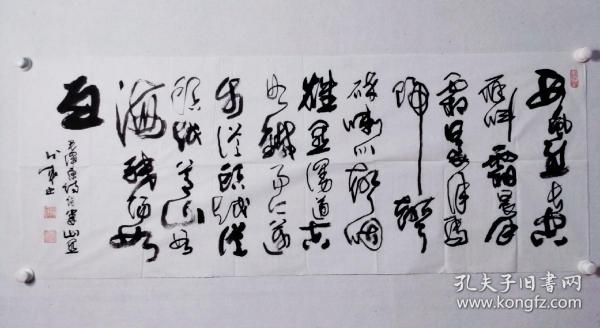 西风烈长空
雁叫霜晨月
霜晨月马
蹄声
碎喇叭声咽
雄关漫道真
如铁而今迈
步从头越从
头越苍山如
海残阳如
血
毛泽东诗词娄山关
孔夫子旧书网
www.kongfz.com